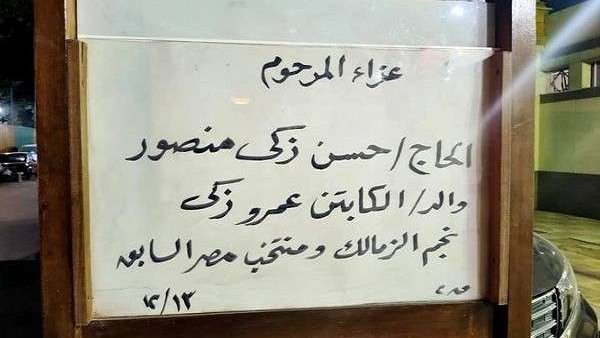 عزاء المرحوم
الحاج/حسن زكى منصور
والد/الكابتن عمرو زكى
نجم الزمالك ومنتخب مصر السابق
١٢/١٣